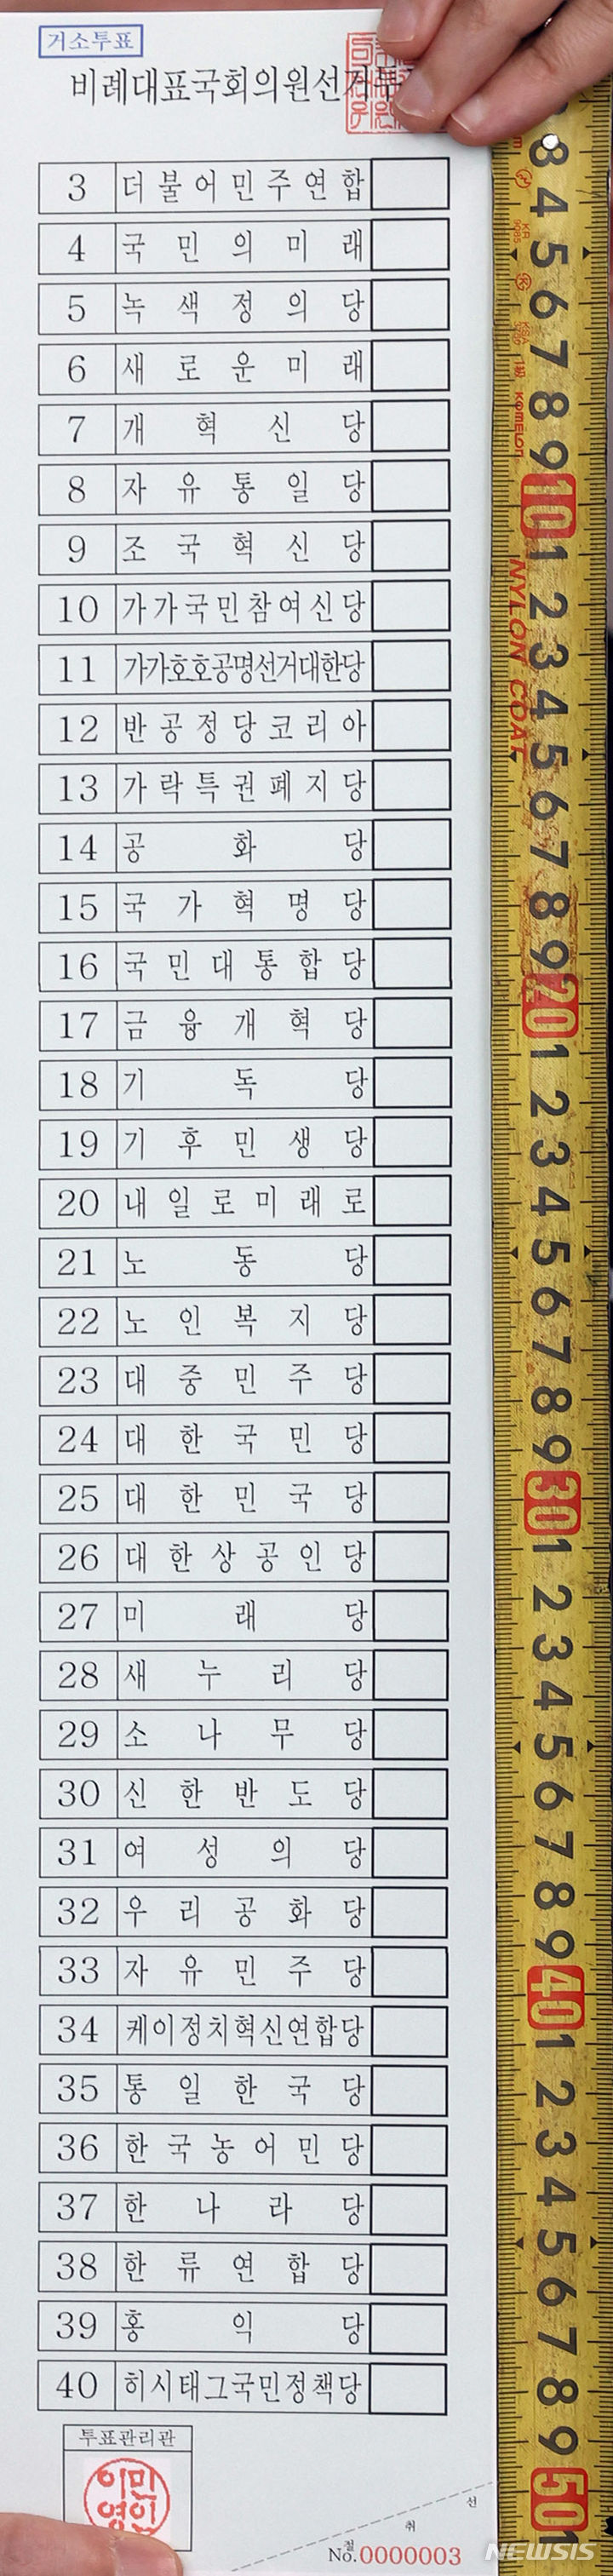 거소투표
비례대표국회의원선거투
3 더불어민주연합
4 국민의미래
5 녹색정의당
6 새로운미래
7 개혁신당
8 자유통일당
9 조국혁신당
10 가가국민참여신당
11 가가호호공명선거대한당
12 반공정당코리아
13 가락특권폐지당
14 공화당
15 국가혁명당
16 국민대통합당
17 금융개혁당
18 기독당
19 기후민생당
20 내일로미래로
21 노동당
22 노인복지당
23 대중민주당
24 대한국민당
25 대한민국당
26 대한상공인당
27 미래당
28 새누리당
29 소나무당
30 신한반도당
31 여성의당
32 우리공화당
33 자유민주당
34 케이정치혁신연합당
35 통일한국당
36 한국농어민당
37 한나라당
38 한류연합당
39 홍익당
40 히시태그국민정책당
투표관리관
이민
영인
절 취 선
No.0000003
8 4 5 6 7 8 9 10 1 2 3 4 5 6 7 8 9 20 1 2 3 4 5 6 7 8 9 30 1 2 3 4 5 6 7 8 9 40 1 2 3 4 5 6 7 8 9 50 1
KOMELON
NYLON COAT
NEWSIS